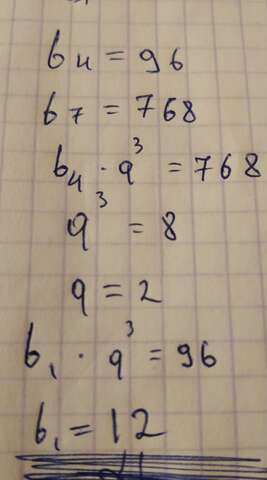 b₄ = 96
b₇ = 768
b₄ · q³ = 768
q³ = 8
q = 2
b₁ · q³ = 96
b₁ = 12